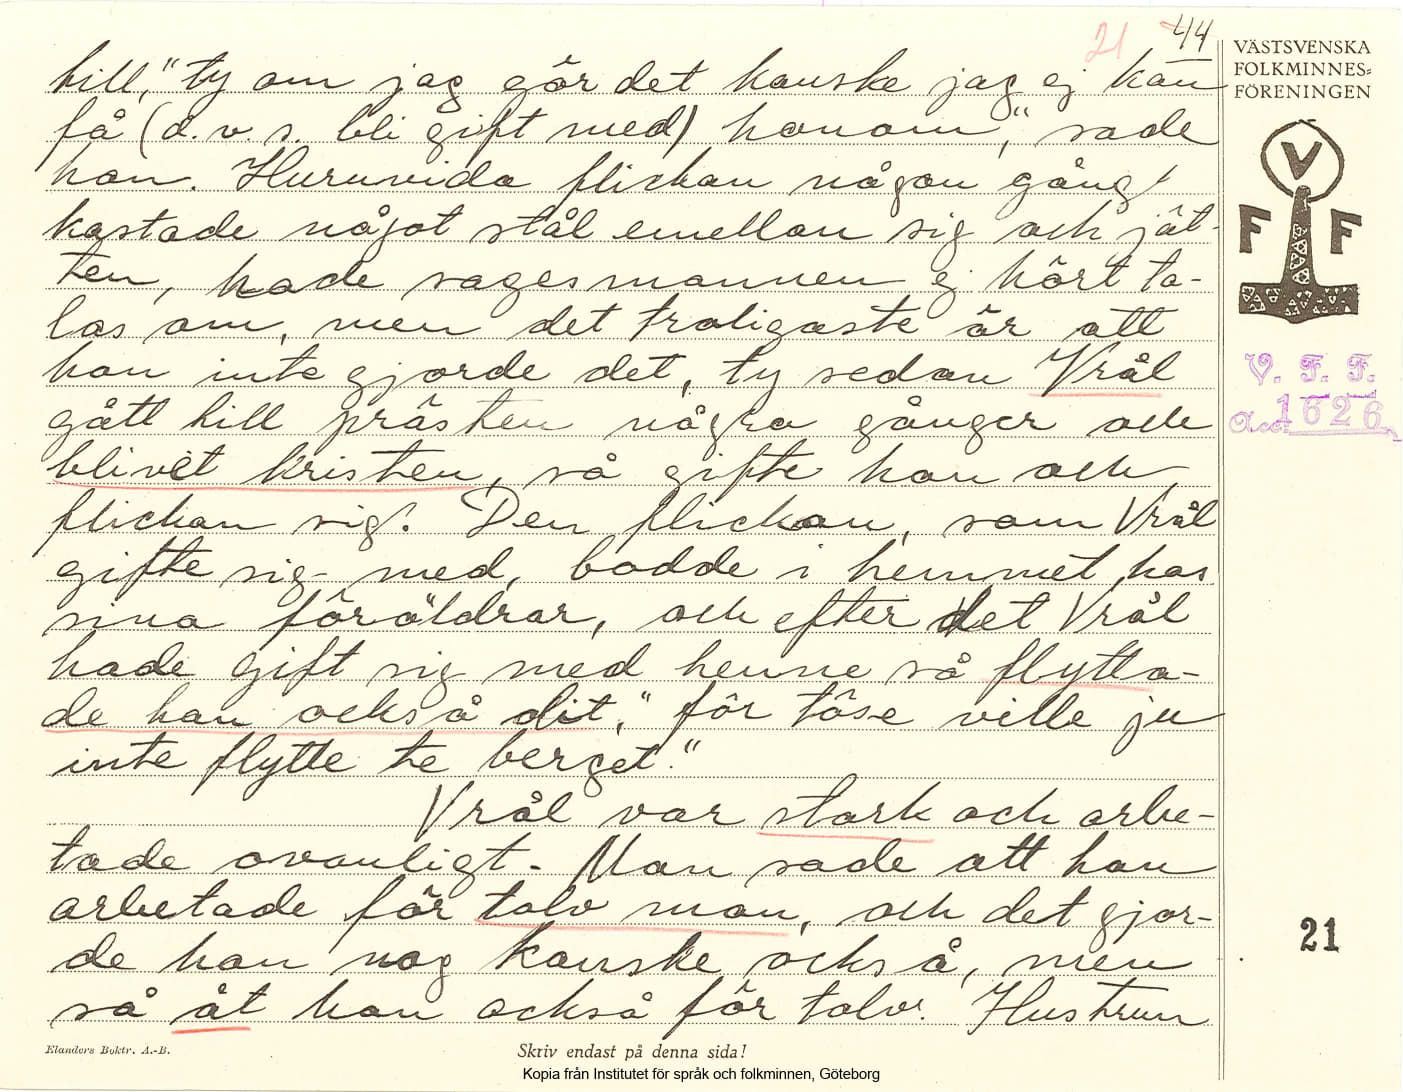 21 44
till," ty om jag gör det kanske jag ej kan
få (d.v.s. bli gift med) honom," sade
hon. Huruvida flickan någon gång
kastade något stål emellan sig och jät-
ten, hade sagesmannen ej hört ta-
las om, men det troligaste är att
hon inte gjorde det, ty sedan Vrål
gått till prästen några gånger och
blivet kristen, så gifte han och
flickan sig. Den flickan, som Vrål
gifte sig med, bodde i hemmet hos
sina föräldrar, och efter det Vrål
hade gift sig med henne så flytta-
de han också dit, "för töse ville ju
inte flytte te berget."
Vrål var stark och arbe-
tade ovanligt. Man sade att han
arbetade för tolv man, och det gjor-
de han nog kanske också, men
så åt han också för tolv. Hustrun
VÄSTSVENSKA
FOLKMINNES=
FÖRENINGEN
V
F F
V. F. F.
Acc. 1626
21
Elanders Boktr. A.-B.
Skriv endast på denna sida!
Kopia från Institutet för språk och folkminnen, Göteborg